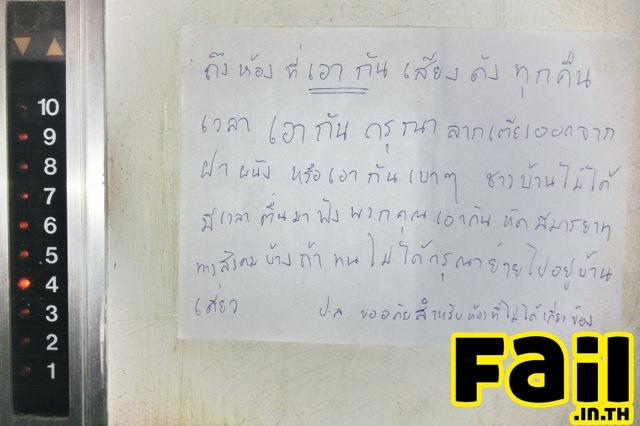 10
9
8
7
6
5
4
3
2
1
ถึงห้อง ที่ เอา กัน เสียง ดัง ทุกคืน
เวลา เอา กัน กรุณา ลากเตียงออกจาก
ฝา ผนัง หรือเอา กัน เบาๆ ชาวบ้านไม่ได้
มีเวลา ตื่นมา ฟัง พวกคุณ เอากัน หัด มีมารยาท
ทางสังคม บ้าง ถ้า ทน ไม่ ได้กรุณาย้ายไปอยู่บ้าน
เดี่ยว ป.ล. ขออภัยสำหรับห้องที่ไม่ได้เกี่ยวข้อง
Fail
.IN.TH